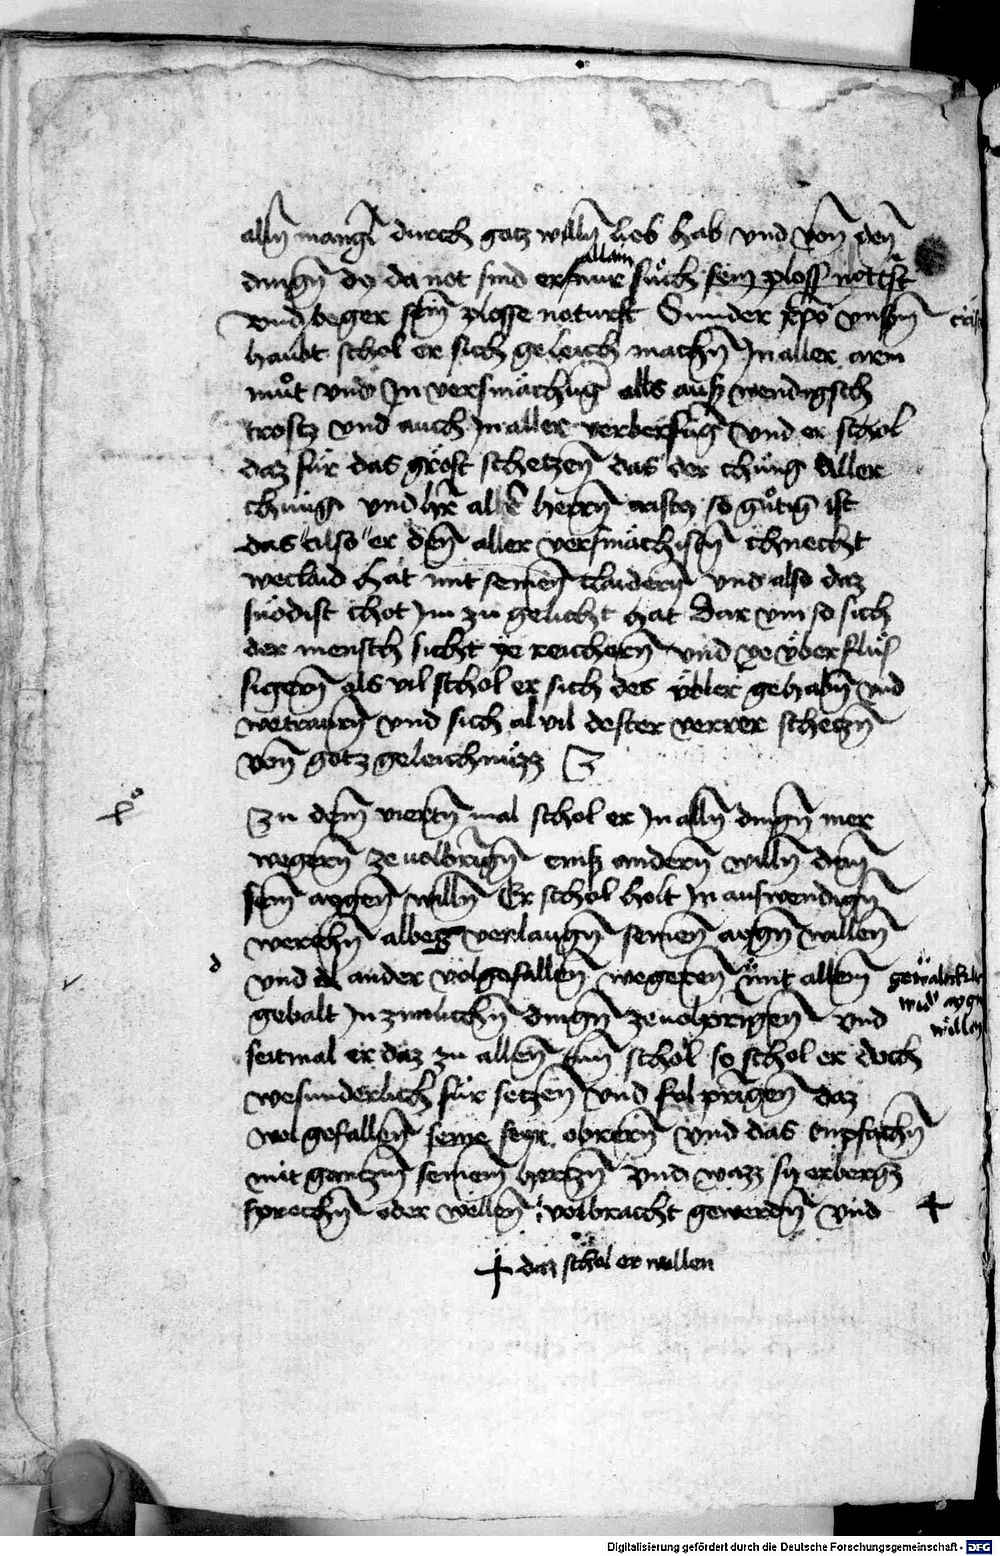 alln mangl durch gotz willn lieb hab vnd von den
allain
dingn dy da not sind er nur such sein ploss nottft
vnd beger sein plosse noturft Sunder xpo vnsern
haubt schol er sich geleich machn In aller arem
muot vnd In versmächung alls auswendigsch
trostz vnd auch In aller vnd er schol
daz für das gröst schetzen das der chünig aller
chünig vnd herr aller herrn so guotig ist
das also er den aller versmächistn chnecht
weclaid hat mit seinen claidern vnd also daz
snödist chot Im zu gelicht hat Dar vm so sich
der mensch sicht ye reichern vnd ye vberflüs
sigern als vil schol er sich des vbler gehabn vnd
wetraurn vnd sich al vil dester verrer schetzn
von gotz geleichnüzz
Zu dem viertn mal schol er In alln dingn mer
wegern ze volbringn eins andern willn den
sein aygen willn Er schol holt In auswendign
werchn albeg verlaugn seinen aygn willen
vnd ander volgefallen wegeren mit allem
gebalt In zimlichn dingn ze volprigen vnd
wid aygn
willen
seitmal er daz zu allen tun schol so schol er doch
wesunderlich für setzen vnd fol prigen daz
wol gefallen seiner obrern vnd das enpfachn
mit gantzm seinem hertzn vnd wazz sy
sprechn oder wellen volbracht gewerdn vnd +
+ daz schol er willen
Digitalisierung gefördert durch die Deutsche Forschungsgemeinschaft - DFG